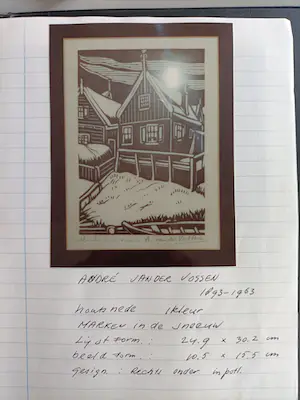 ANDRÉ VANDER VOSSEN
1893-1963
houtsnede 1kleur
MARKEN in de sneeuw
Lijst form.: 24.9 x 30.2 cm
beeld form.: 10.5 x 15.5 cm
gesign.: Rechts onder in potl.